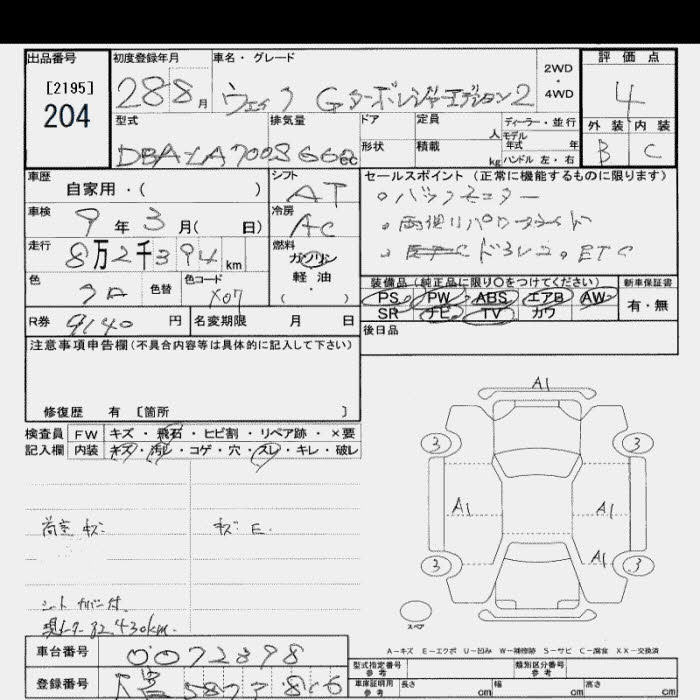 出品番号 初度登録年月 車名・グレード 2WD・4WD 評価点
[2195]
204 28 8月 ウェイク Gターボレジャーエディション2 4
型式 排気量 ドア 定員 人 ディーラー・並行 外装 内装
モデル年式 年
DBA-LA700S 660cc 形状 積載 kg ハンドル 左・右 B C
車歴 自家用・( ) シフト AT セールスポイント (正常に機能するものに限ります)
車検 9年3月( 日) 冷房 AC ・バックモニター
・両側パワースライド
走行 8万2千394km 燃料 ガソリン 軽油・( ) ドラレコ。ETC
色 クロ 色替 色コード X07 装備品(純正品に限り○をつけてください) 新車保証書
PS PW ABS エアB AW 有・無
SR ナビ TV カワ
R券 9140円 名変期限 月 日 後日品
注意事項申告欄(不具合内容等は具体的に記入して下さい)
修復歴 有 [箇所 ]
検査員 FW キズ・飛石・ヒビ割・リペア跡・×要
記入欄 内装 キズ・汚レ・コゲ・穴・スレ・キレ・破レ
A1
3 3
荷室 キズ キズ E
A1 A1
A1
3 3
シートカバー付
現メーター82,430km
スペア
A-キズ E-エクボ U-凹み W-補修跡 S-サビ C-腐食 XX-交換済
車台番号 0072398
型式指定番号 参考 類別区分番号 参考
登録番号 58 816
車庫証明用 参考 長さ cm 幅 cm 高さ cm